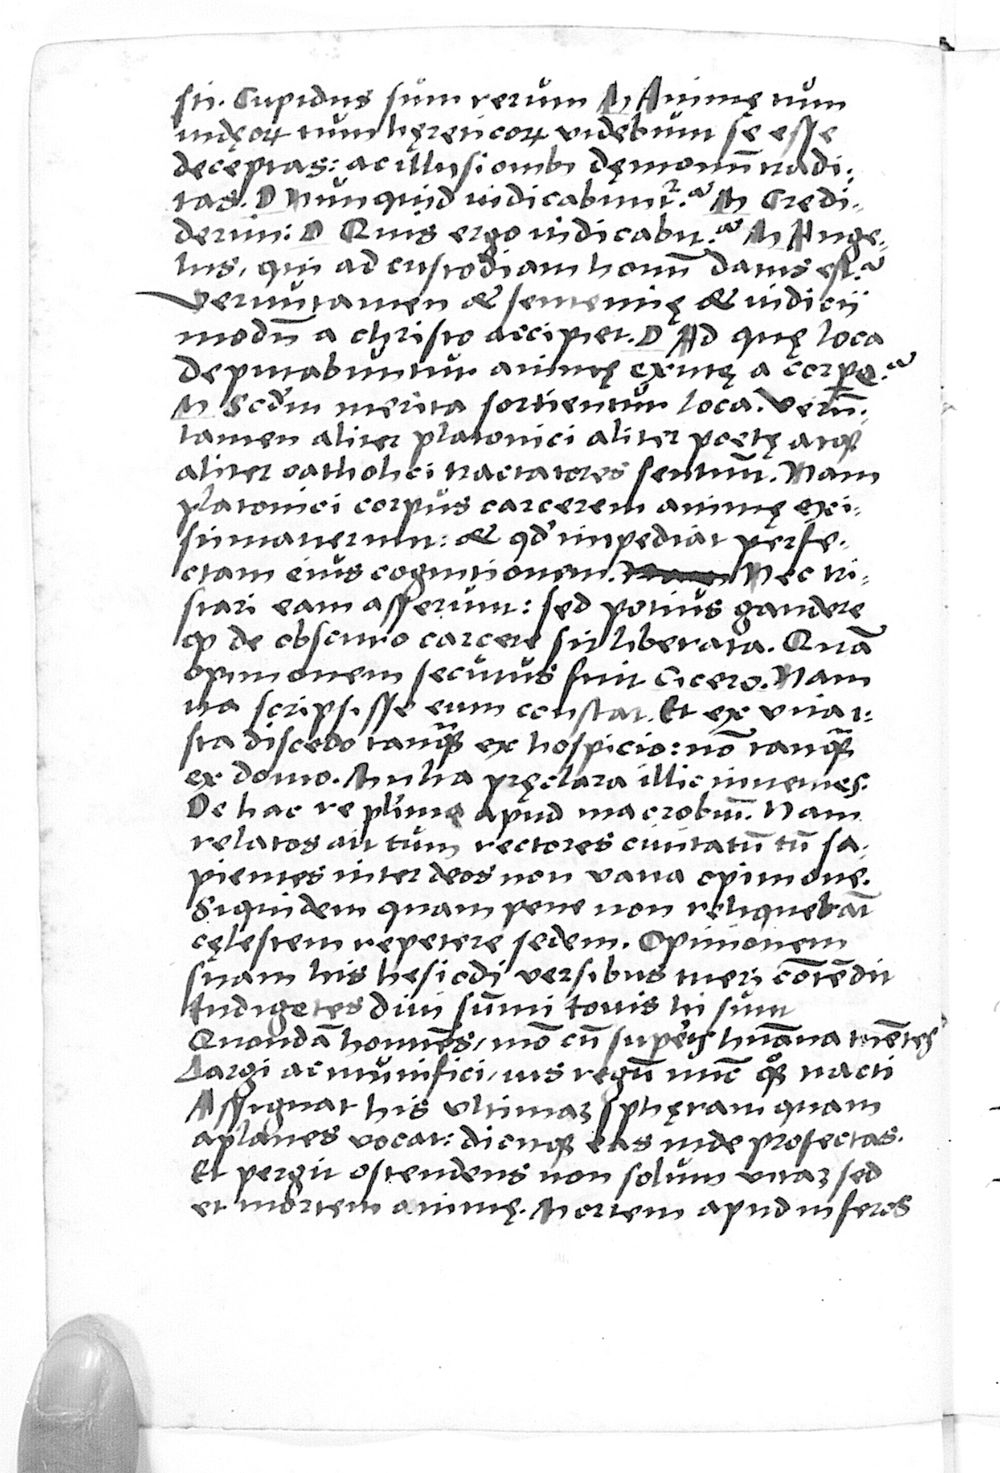 sti. Cupidus sum rerum M Animę tum
iudęoꝝ tum hęreticoꝝ videbunt se esse
deceptas: ac illusionib dęmonū tradi-
tas. D Nunquid iudicabuntʳ. M Credi-
derim: D Quis ergo iudicabit. M Ange-
lus, qui ad custodiam homī datus est.
Veruntamen & sententię & iudicii
modū a christo accipiet. D Ad quę loca
deputabuntur animę exutę a corpe.
M Scdm merita sortientur loca. Verū-
tamen aliter platonici aliter poetę atqꝫ
aliter catholici tractatores sentiūt. Nam
platonici corpus carcerem animę exi-
stimauerunt: & qd impediat perfe-
ctam eius cognitionem. Nec tri-
stari eam asserunt: sed potius gaudere
ꝙ de obscuro carcere sit liberata. Quā
opinionem secutus fuit Cicero. Nam
ita scripsisse eum constat. Et ex vita i-
sta discedo tanqꝫ ex hospicio: nō tanqꝫ
ex domo. Multa pręclara illic inuenies.
De hac re plima apud macrobiū. Nam
relatos ait tum rectores ciuitatū tū sa-
pientes inter deos non vana opinione.
Siquidem quam pene non reliquebāt
cęlestem repetere sedem. Opinionem
suam his hesiodi versibus tueri cōtēdit
Indigetes diui sūmi Iouis hi sunt
Quondā homines, mō cū superis humana tuētes
Largi ac munifici, ius regū nūc qꝫ nacti
Assignat his vltimaꝫ sphęram quam
aplanes vocat: dicitqꝫ eas inde profectas.
Et pergit ostendens non solum vitaꝫ sed
et mortem animę. Mortem apud inferos